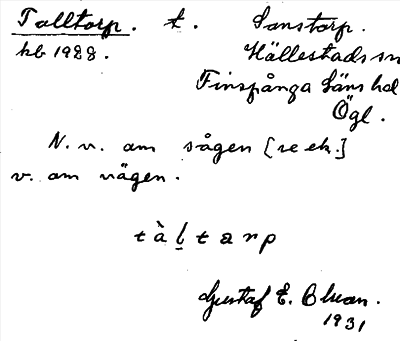 Talltorp. t. Sanstorp.
kb 1928. Hällestads sn
Finspånga läns hd
Ögl.
N. v. om sågen [se ek.]
v. om vägen.
t à l t a r p
Gustaf E. Bluan.
1931